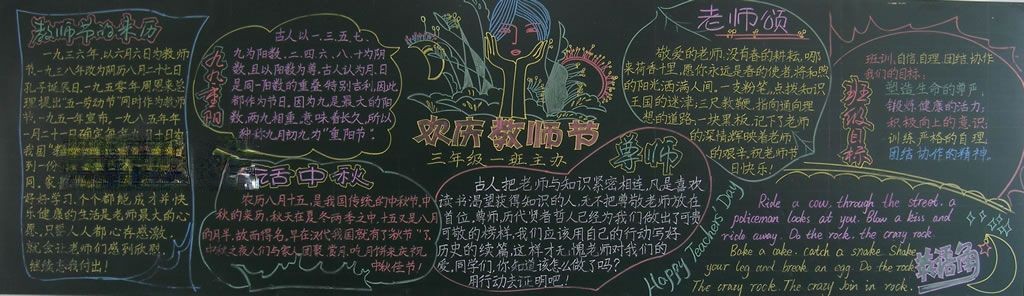 教师节的来历
一九三六年,以六月六日为教师
节,一九三八年改为阴历八月二十七日
孔子诞辰日,一九五零年周恩来总
理提出"五一劳动节"同时作为教师
节,一九五一年宣布,一九八五年年
一月二十一日
好好学习,个个都能成才,并快
乐健康的生活是老师最大的心
愿,只要人人都心存感激,
就会让老师们感到欣慰,
继续志我付出!
九九重阳
古人以一、三、五、七、
九为阳数,二、四、六、八、十为阴
数,且以阳数为尊,古人认为月、日
是同一阳数的重叠特别吉利,因此
都作为节日,因为九是最大的阳
数,两九相重,意味着长久,所以
种称九月初九为"重阳节"。
话中秋
农历八月十五,是我国传统的中秋节,中
秋的来历:秋天在夏、冬两季之中,十五又是八月
的月半,故而得名,早在汉代我国就有了"秋节"了。
中秋之夜人们与家人团聚赏月、吃月饼来庆祝
中秋佳节!
欢庆教师节
三年级一班主办
尊师
古人把老师与知识紧密相连,凡是喜欢
读书渴望获得知识的人,无不把尊敬老师放在
首位。尊师,历代贤者哲人已经为我们做出了可贵
可敬的榜样,我们应该用自己的行动写好
历史的续篇,这样才无愧老师对我们的
爱,同学们,你知道该怎么做了吗?
用行动去证明吧!
老师颂
敬爱的老师,没有春的耕耘,哪
来荷香十里,愿你永远是春的使者,将和煦
的阳光洒满人间。一支粉笔,点拨知识
王国的迷津;三尺教鞭,指向通向理
想的道路;一块黑板,记下了老师
的深情;辉映着老师
的艰辛,祝老师节
日快乐!
班级目标
班训:自信 自理 团结 协作
我们的目标:
塑造生命的尊严,
锻炼健康的活力,
积极向上的意识,
训练严格的自理
团结协作的精神。
Happy Teacher's Day
Ride a cow through the street, a
policeman looks at you. Blow a kiss and
ride away. Do the rock, the crazy rock.
Bake a cake, catch a snake. Shake
your leg and break an egg. Do the rock
The crazy rock. The crazy join in rock.
英语角